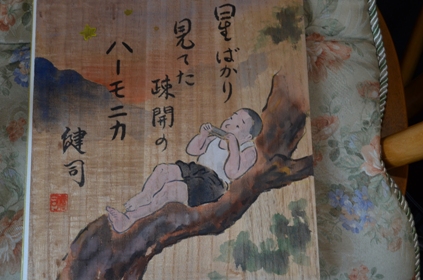 星ばかり
見てた
疎開の
ハーモニカ
健司